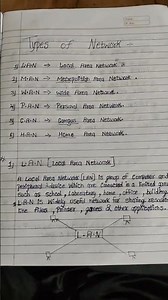 Types of Network -
1) L.A.N → Local Area Network
2) M.A.N → Metropolitan Area Network
3) W.A.N → Wide Area Network
4) P.A.N → Personal Area Network
5) C.A.N → Campus Area Network
6) H.A.N → Home Area Network
1) L.A.N [Local Area Network]
A Local Area Network (LAN) is group of Computer and
peripheral device which are connected in a limited
such as school, laboratory, home, office, building
L.A.N is widely useful network for sharing
like files, printer, games & other applications.
L-A-N